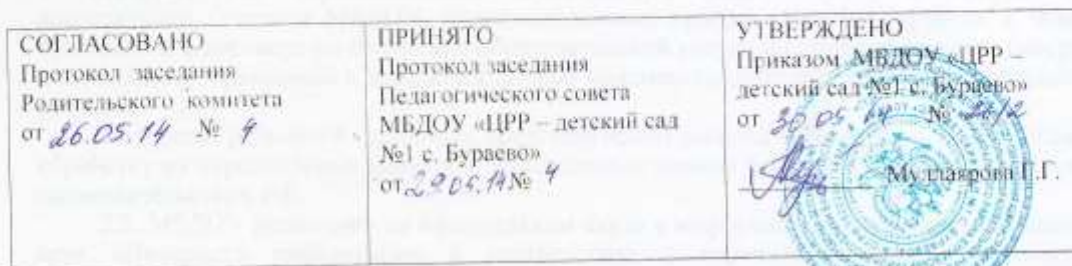 СОГЛАСОВАНО
Протокол заседания
Родительского комитета
от 26.05.14 № 4
ПРИНЯТО
Протокол заседания
Педагогического совета
МБДОУ «ЦРР – детский сад
№1 с. Бураево»
от 29.05.14 № 4
УТВЕРЖДЕНО
Приказом МБДОУ «ЦРР –
детский сад №1 с. Бураево»
от 30.05.14 №
Муллаярова Г.Г.